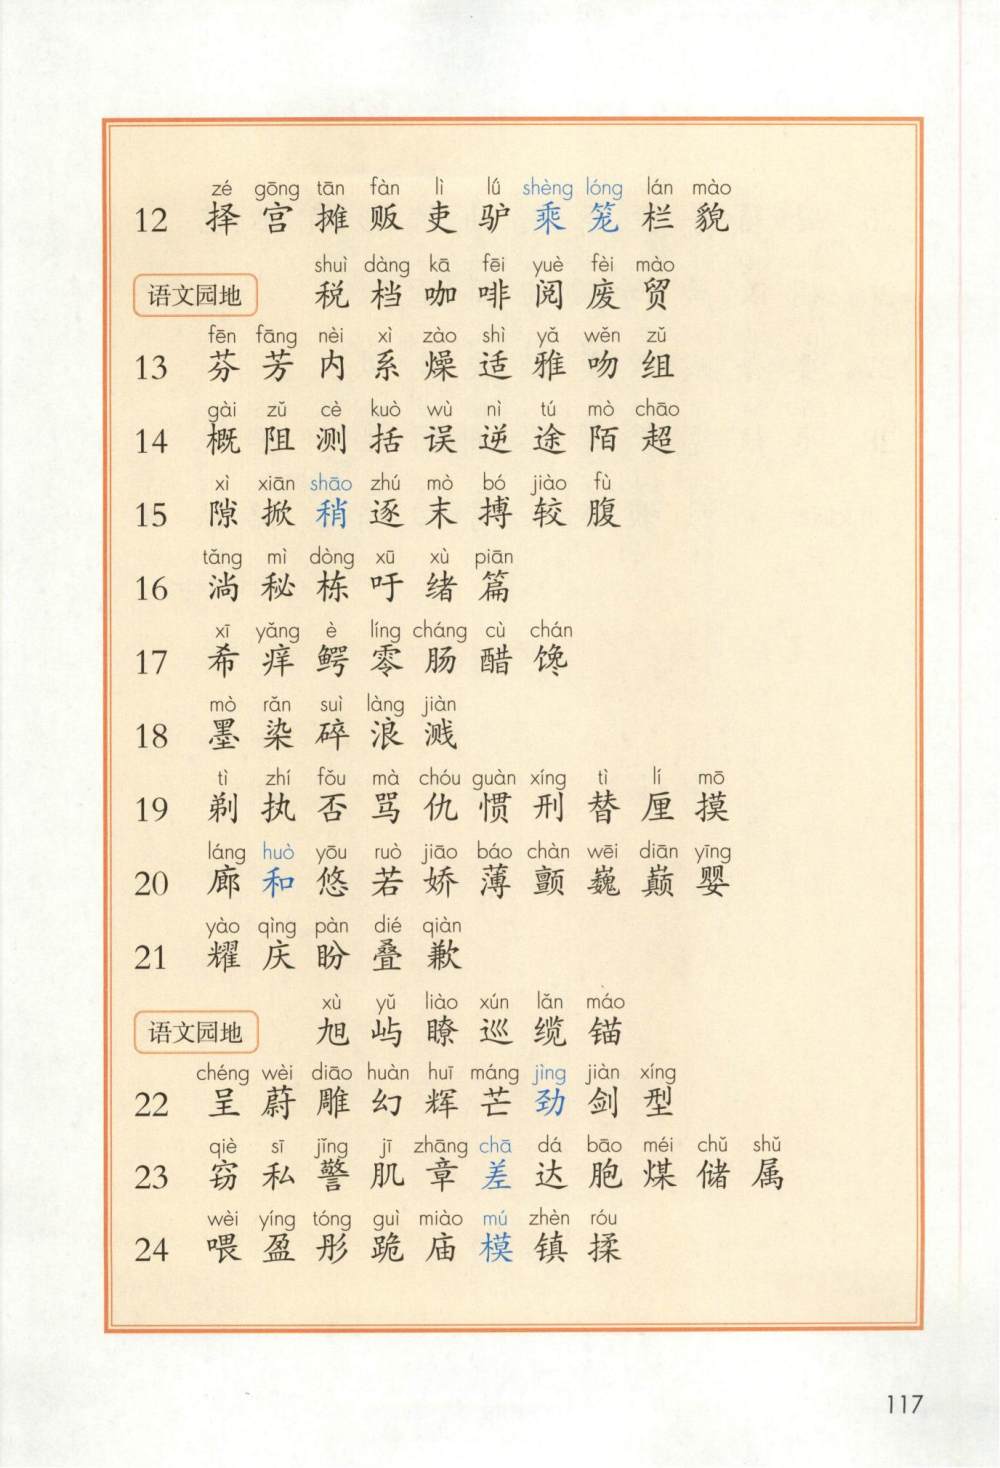 zé gōng tān fàn lì lǘ shèng lóng lán mào
12 择 宫 摊 贩 吏 驴 乘 笼 栏 貌
shuì dàng kā fēi yuè fèi mào
语文园地 税 档 咖 啡 阅 废 贸
fēn fāng nèi xì zào shì yǎ wěn zǔ
13 芬 芳 内 系 燥 适 雅 吻 组
gài zǔ cè kuò wù nì tú mò chāo
14 概 阻 测 括 误 逆 途 陌 超
xì xiān shāo zhú mò bó jiào fù
15 隙 掀 稍 逐 末 搏 较 腹
tǎng mì dòng xū xù piān
16 淌 秘 栋 吁 绪 篇
xī yǎng è líng cháng cù chán
17 希 痒 鳄 零 肠 醋 馋
mò rǎn suì làng jiàn
18 墨 染 碎 浪 溅
tì zhí fǒu mà chóu guàn xíng tì lí mō
19 剃 执 否 骂 仇 惯 刑 替 厘 摸
láng huò yōu ruò jiāo báo chàn wēi diān yīng
20 廊 和 悠 若 娇 薄 颤 巍 巅 婴
yào qìng pàn dié qiàn
21 耀 庆 盼 叠 歉
xù yǔ liào xún lǎn máo
语文园地 旭 屿 瞭 巡 缆 锚
chéng wèi diāo huàn huī máng jìng jiàn xíng
22 呈 蔚 雕 幻 辉 芒 劲 剑 型
qiè sī jǐng jī zhāng chā dá bāo méi chǔ shǔ
23 窃 私 警 肌 章 差 达 胞 煤 储 属
wèi yíng tóng guì miào mú zhèn róu
24 喂 盈 彤 跪 庙 模 镇 揉
117